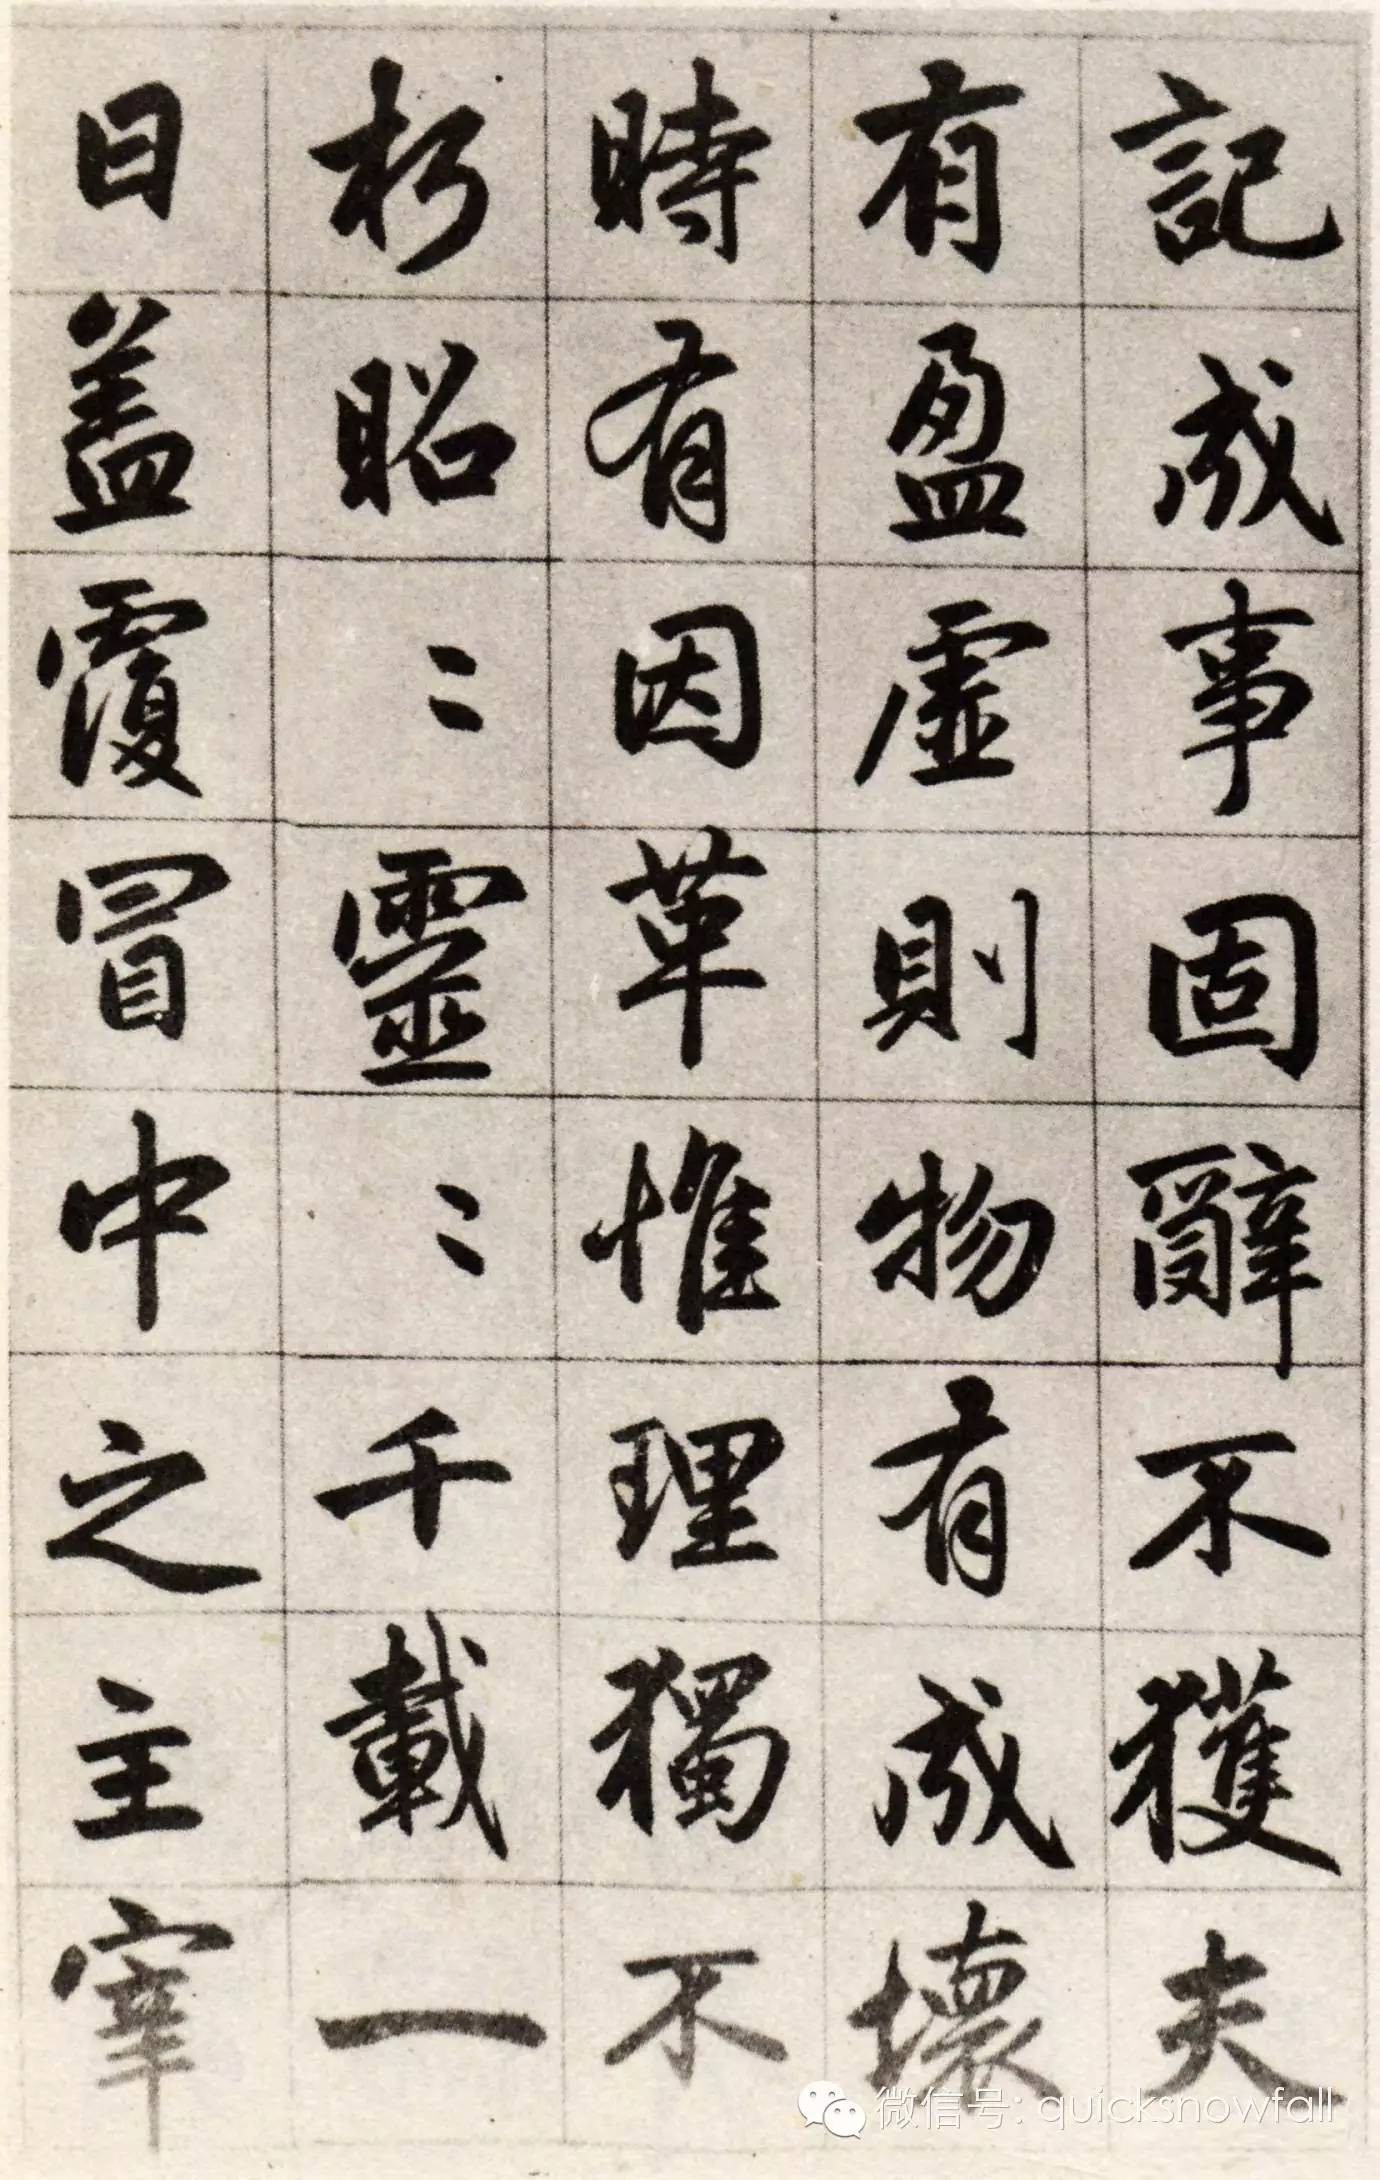 記成事固辭不獲夫
有盈虛則物有成壞
時有因革惟理獨不
朽昭〻靈〻千載一
日盖覆冒中之主宰
微信号: quicksnowfall